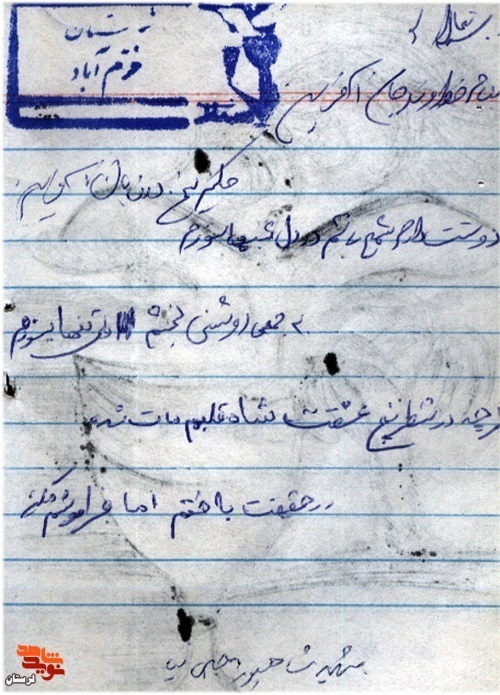 بسمه تعالی
لرستان
خرم آباد
بنام خداوند جان آفرین
حکیم سخن در زبان آفرین
دوست دارم شمع باشم در دل شبها بسوزم
به جمعی روشنی بخشم ولی تنها بسوزم
گرچه در شطرنج عشقت شاه قلبم مات شد
در حقیقت باختم اما فراموشم مکن
شهید
شاهد
نوید
لرستان